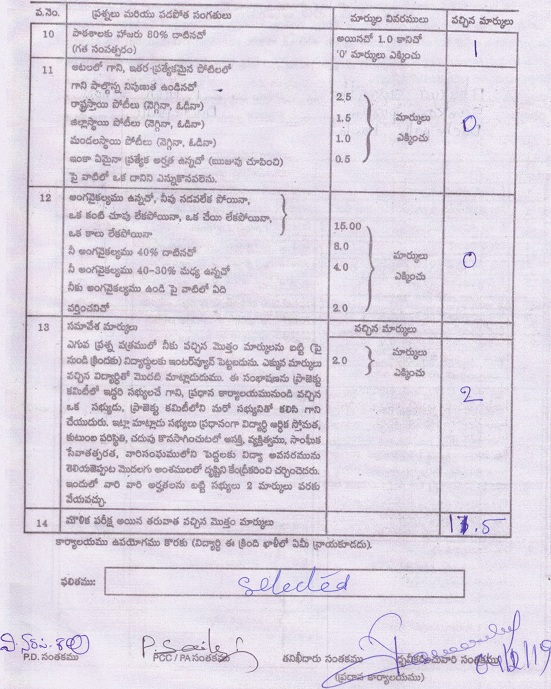 వ.నెం. ప్రశ్నలు మరియు పడపోత సంగతులు మార్కుల వివరములు వచ్చిన మార్కులు
10 పాఠశాలకు హాజరు 80% దాటినచో అయినచో 1.0 కానిచో 1
(గత సంవత్సరం) '0' మార్కులు ఎక్కించు
11 ఆటలలో గాని, ఇతర ప్రత్యేకమైన పోటీలలో
గాని పాల్గొన్న నిపుణుత ఉండినచో 2.5
రాష్ట్రస్థాయి పోటీలు (నెగ్గినా, ఓడినా)
జిల్లాస్థాయి పోటీలు (నెగ్గినా, ఓడినా) 1.5 మార్కులు 0
మండలస్థాయి పోటీలు (నెగ్గినా, ఓడినా) 1.0 ఎక్కించు
ఇంకా ఏమైనా ప్రత్యేక అర్హత ఉన్నచో (ఋజువు చూపించి) 0.5
పై వాటిలో ఒక దానిని ఎన్నుకొనవలెను.
12 అంగవైకల్యము ఉన్నచో, నీవు నడవలేక పోయినా,
ఒక కంటి చూపు లేకపోయినా, ఒక చేయి లేకపోయినా,
ఒక కాలు లేకపోయినా 15.00
నీ అంగవైకల్యము 40% దాటినచో 8.0 మార్కులు 0
నీ అంగవైకల్యము 40-30% మధ్య ఉన్నచో 4.0 ఎక్కించు
నీకు అంగవైకల్యము ఉండి పై వాటిలో ఏది
వర్తించనిచో 2.0
13 సమావేశ మార్కులు వచ్చిన మార్కులు
ఎగువ ప్రశ్న పత్రములో నీకు వచ్చిన మొత్తం మార్కులను బట్టి (పై 2.0 మార్కులు
నుండి క్రిందకు) విద్యార్థులకు ఇంటర్వ్యూస్ పెట్టబడును. ఎక్కువ మార్కులు ఎక్కించు
వచ్చిన విద్యార్థితో మొదటి మాట్లాడుదుము. ఈ సంభాషణను ప్రాజెక్టు
కమిటీలో ఇద్దరి సభ్యులచే గాని, ప్రధాన కార్యాలయమునుండి వచ్చిన 2
ఒక సభ్యుడు, ప్రాజెక్టు కమిటీలోని మరో సభ్యునితో కలిసి గాని
చేయుదురు. ఇట్లా మాట్లాడు సభ్యులు ప్రధానంగా విద్యార్థి ఆర్థిక స్తోమత,
కుటుంబ పరిస్థితి, చదువు కొనసాగించుటలో ఆసక్తి, వ్యక్తిత్వము, సాంఘిక
సేవాతత్పరత, వారిసంఘములోని పెద్దలకు విద్యా అవసరమును
తెలియజెప్పుట మొదలగు అంశములలో దృష్టిని కేంద్రీకరించి చర్చించెదరు.
ఇందులో వారి వారి అర్హతలను బట్టి సభ్యులు 2 మార్కులు వరకు
వేయవచ్చు.
14 మౌలిక పరీక్ష అయిన తరువాత వచ్చిన మొత్తం మార్కులు 11.5
కార్యాలయము ఉపయోగము కొరకు (విద్యార్థి ఈ క్రింది ఖాళీలో ఏమీ వ్రాయకూడదు).
ఫలితము: selected
P.D. సంతకము PCC / PA సంతకము తనిఖీదారు సంతకము స్వీకరించువారి సంతకము
(ప్రధాన కార్యాలయం)